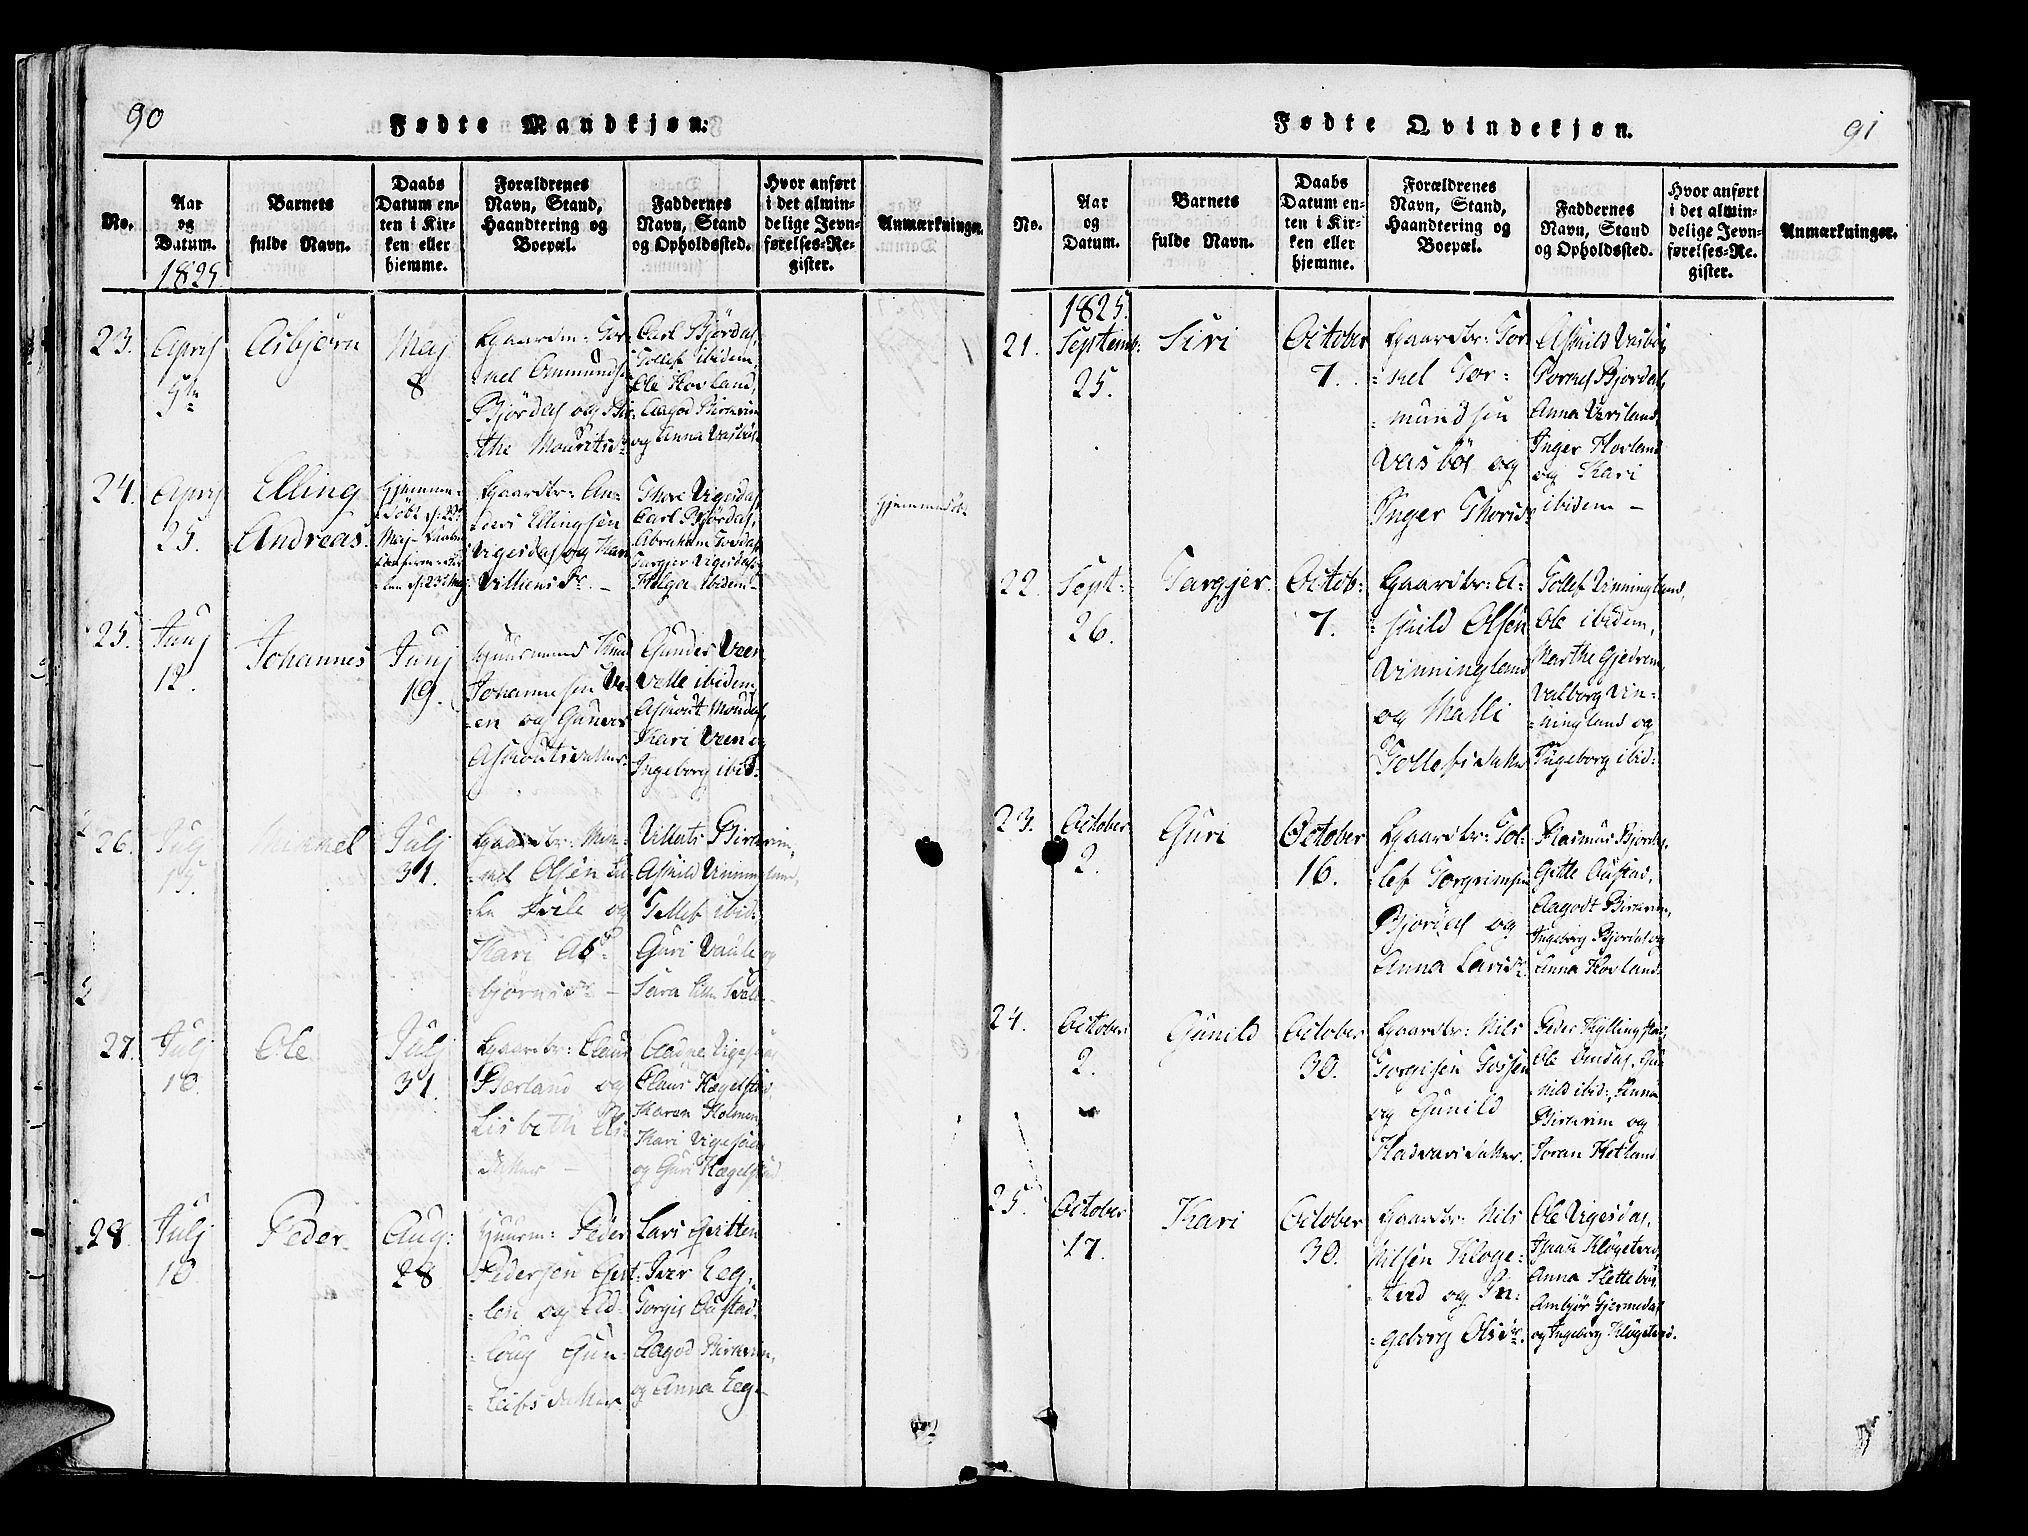 90
Fødte Mandkjøn:
No.
Aar
og
Datum.
1825
Barnets
fulde Navn.
Daabs
Datum en-
ten i Kir-
ken eller
hjemme.
Forældrenes
Navn, Stand,
Haandtering og
Boepæl.
Faddernes
Navn, Stand
og Opholdssted.
Hvor anført
i det almin-
delige Jevn-
førelses-Re-
gister.
Anmærkninger.
23.
April
Asbjørn
Maj
8
Gaardm: Tor
Bjørdal og Bir-
the Mouritsdr
Carl Bjørdal,
Tollef ibidem,
Ole Hovland,
Aagod Birkrim
og Anna Vasbøe
24.
April
25.
Elling
Andreas
Hjemme-
Gaardbr: An-
ders Ellingsen
Vigesdal og Kari
Villumsdr. -
Thore Vigesdal,
Carl Bjørdal,
Abraham
Targjer Vigesdal,
Helga ibidem -
Hjemmedøbt
25.
Junj
12.
Johannes
Junj
19.
Huusmand Knud
Johannesen Ve-
en og Guner
Asmoutsdatter.
Gunder Veen
Velle ibidem
Asmout Mondal
Kari Veen og
Ingeborg ibid:
26.
Julj
15.
Mikkel
Julj
31.
Gaardbr: Mik-
kel Olsen Li-
le Svile og
Kari As-
bjørnsdr -
Villats Birkrim,
Askild Vinningland,
Tollef ibid:
Guri Vaule og
Sara lille Svile -
27.
Julj
10.
Ole
Julj
31.
Gaardbr: Claus
Bærland og
Lisbeth
datter -
Aadne Vigesaa
Claus Hægelstad,
Karen Holmen,
Kari Vigesaa
og Guri Hægelstad
28.
Julj
10.
Peder
Aug:
28
Huusm: Peder
Pedersen
len og Eld-
loug Gun-
leifsdatter.
Lars Gritten
Iver Eeg,
Torgis Oustad
Aagod Birkrim,
og Anna Eeg -
Fødte Qvindekjøn.
91
No.
Aar
og
Datum.
Barnets
fulde Navn.
Daabs
Datum en-
ten i Kir-
ken eller
hjemme.
Forældrenes
Navn, Stand,
Haandtering og
Boepæl.
Faddernes
Navn, Stand
og Opholdssted.
Hvor anført
i det almin-
delige Jevn-
førelses-Re-
gister.
Anmærkninger.
1825.
21.
Septemb:
25.
Siri
October
7.
Gaardbr: Tor-
kel Tor-
mundsen
Vasbøe og
Inger Thorisdr
Askild Vasbøe,
Tormod Bjordal,
Anna Versland,
Inger Hovland
og Kari
ibidem -
22.
Sept:
26.
Targjer.
Octob:
7.
Gaardbr: A-
skild Olsen
Vinningland
og Malli
Tollefsdatter
Tollef Vinningland,
Ole ibidem,
Marthe Gjedrem,
Valborg Vin-
ningland og
Ingeborg ibid:
23.
October
2.
Guri
October
16.
Gaardbr: Tol-
lef Torgrimsen
Bjordal og
Anna Larsdr
Rasmus Bjordal,
Gitle Oustad,
Aagodt Birkrim,
Ingeborg Bjordal og
Anna Hovland.
24.
October
2.
Gunild
October
30.
Gaardbr: Nils
Torgisen Tossen
og Gunild
Hadvarsdatter.
Peder Kyllingstad,
Ole Omdal, Gu-
nild ibid:, Anna
Birkrim og
Joran Hetland
25.
October
17.
Kari
October
30.
Gaardbr: Nils
Nilsen Kloge-
tved og In-
geborg Olsdr.
Ole Vigesdal,
Isaac Klogetved,
Anna Slettebøe,
Ambjør Gjermedal
og Ingeborg Klogetved.